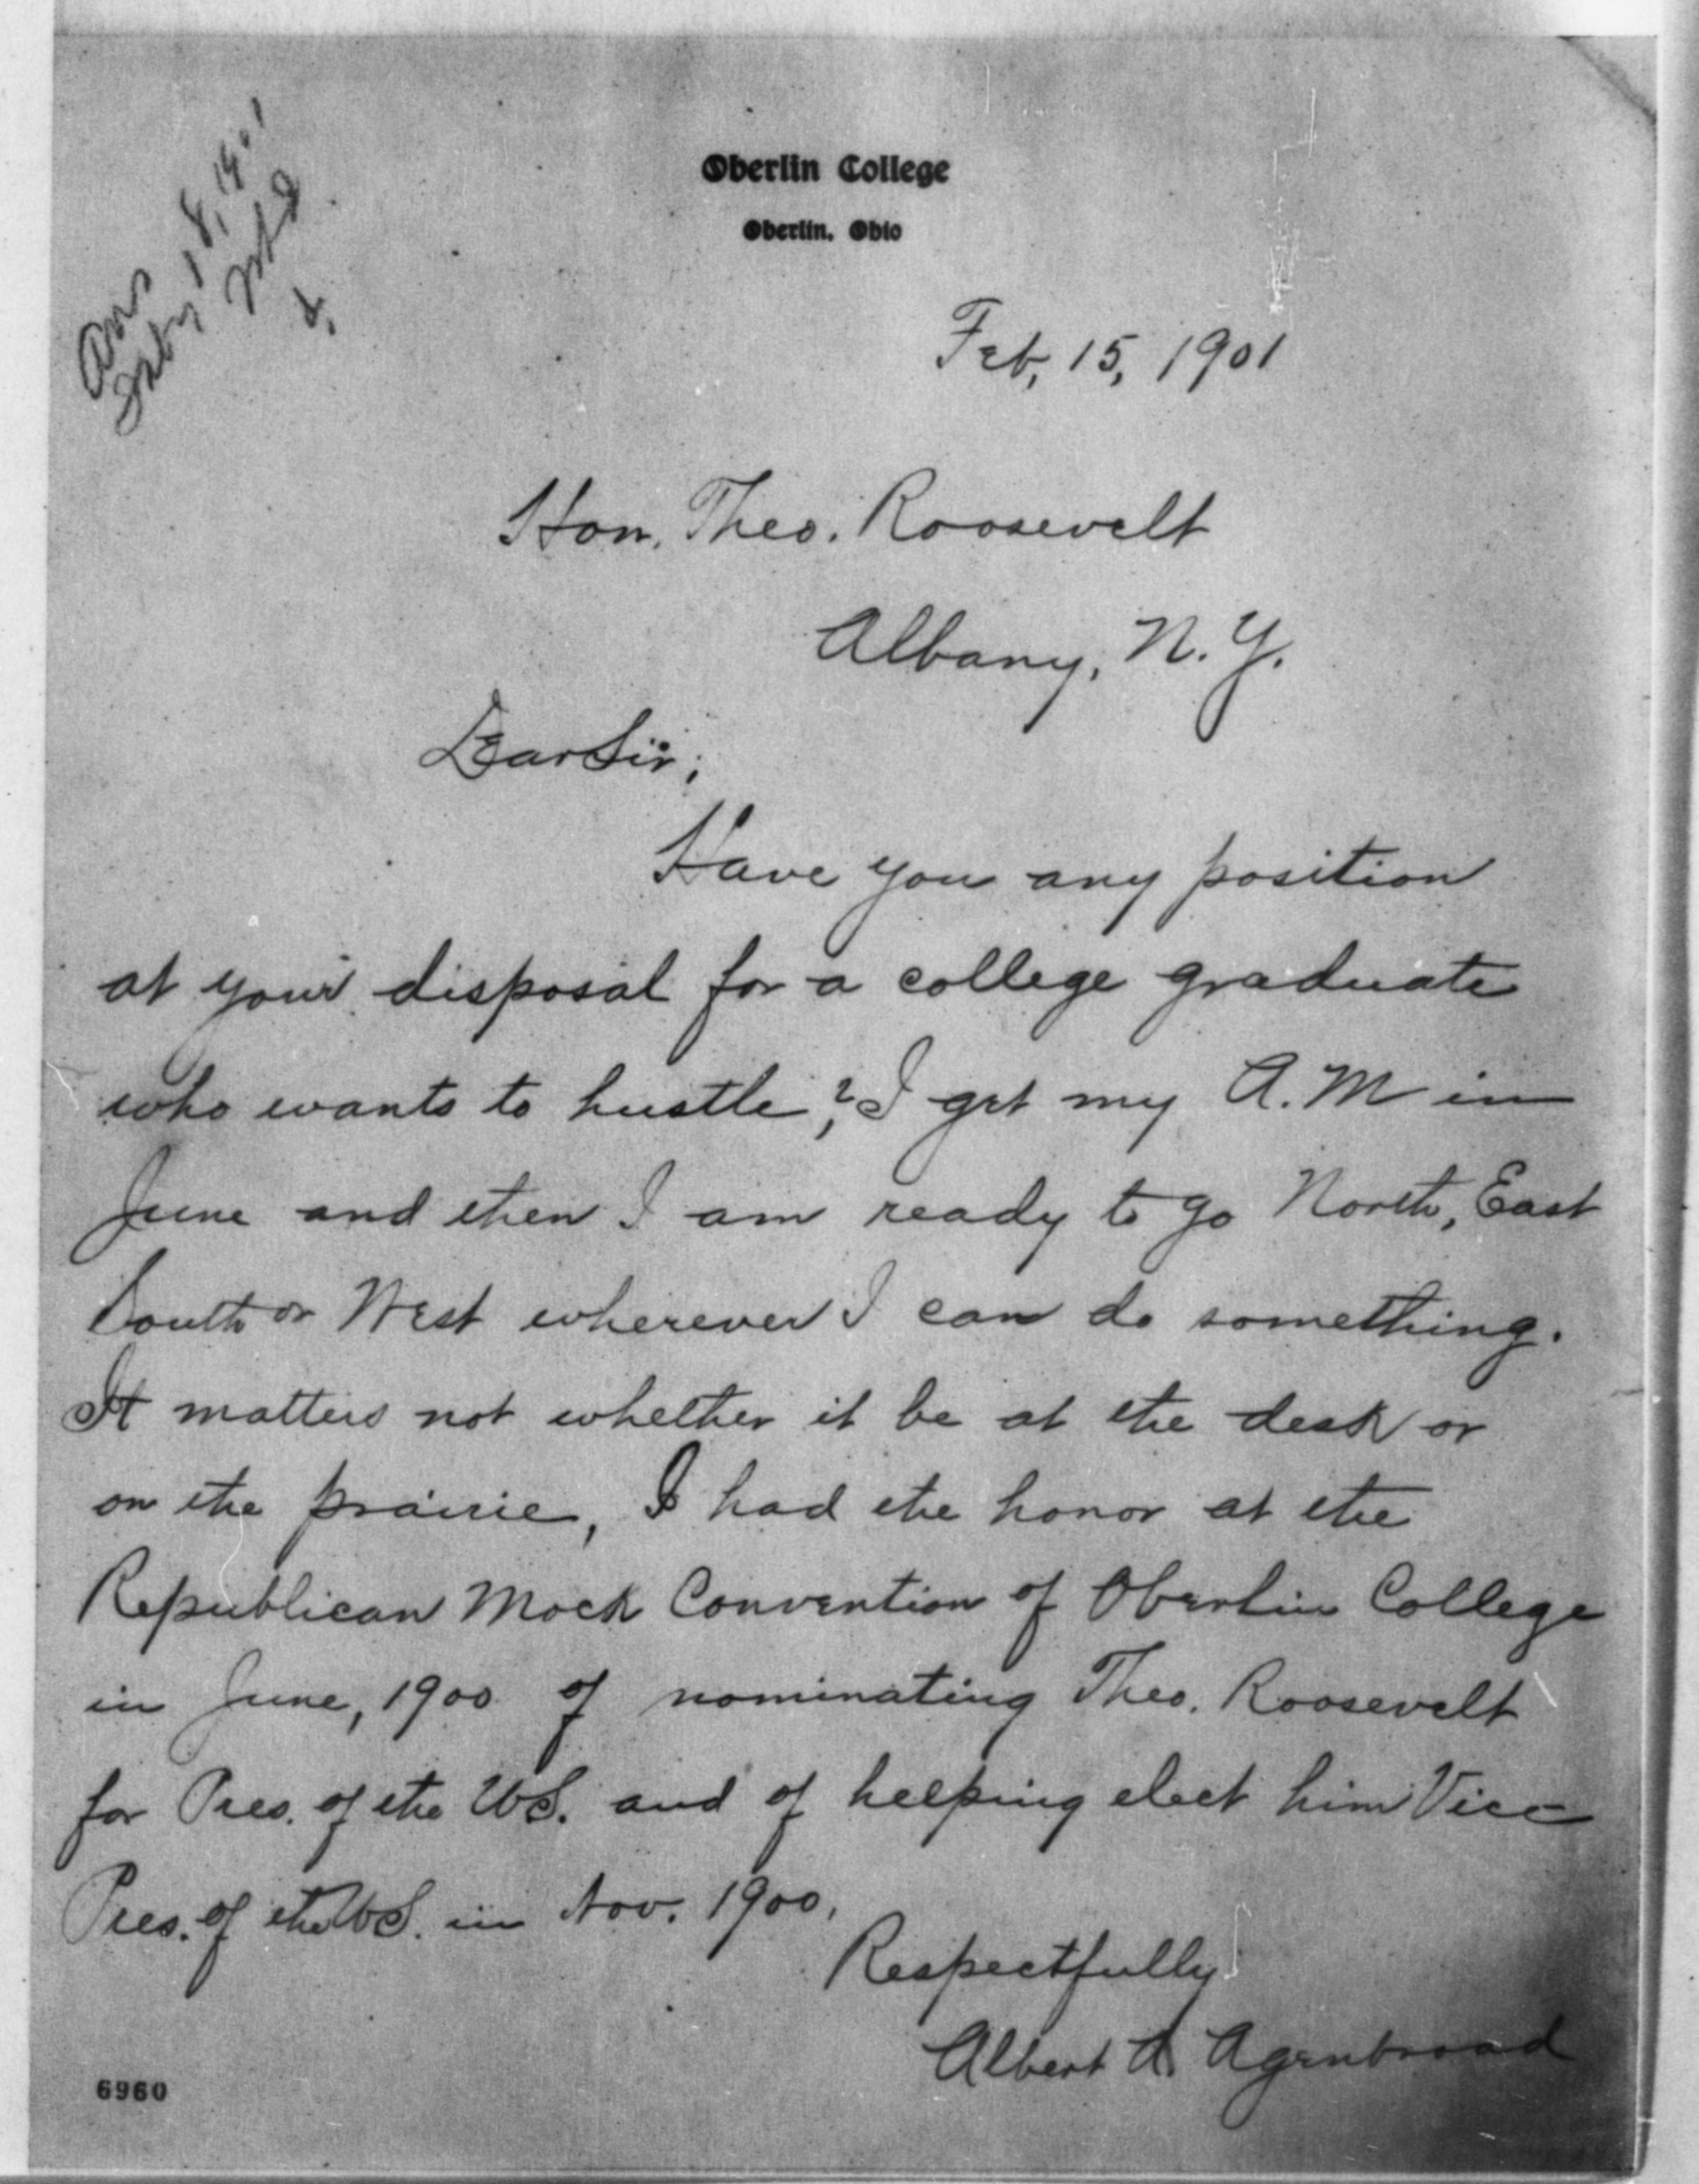 Ans
Feby 18, 1901
Oberlin College
Oberlin, Ohio
Feb, 15, 1901
Hon. Theo. Roosevelt
Albany, N. Y.
Dear Sir;
Have you any position
at your disposal for a college graduate
who wants to hustle? I get my A.M in
June and then I am ready to go North, East
South or West wherever I can do something.
It matters not whether it be at the desk or
on the prairie, I had the honor at the
Republican Mock Convention of Oberlin College
in June, 1900 of nominating Theo. Roosevelt
for Pres. of the U.S. and of helping elect him Vice
Pres. of the U.S. in Nov. 1900,
Respectfully
Albert A. Agenbroad
6960